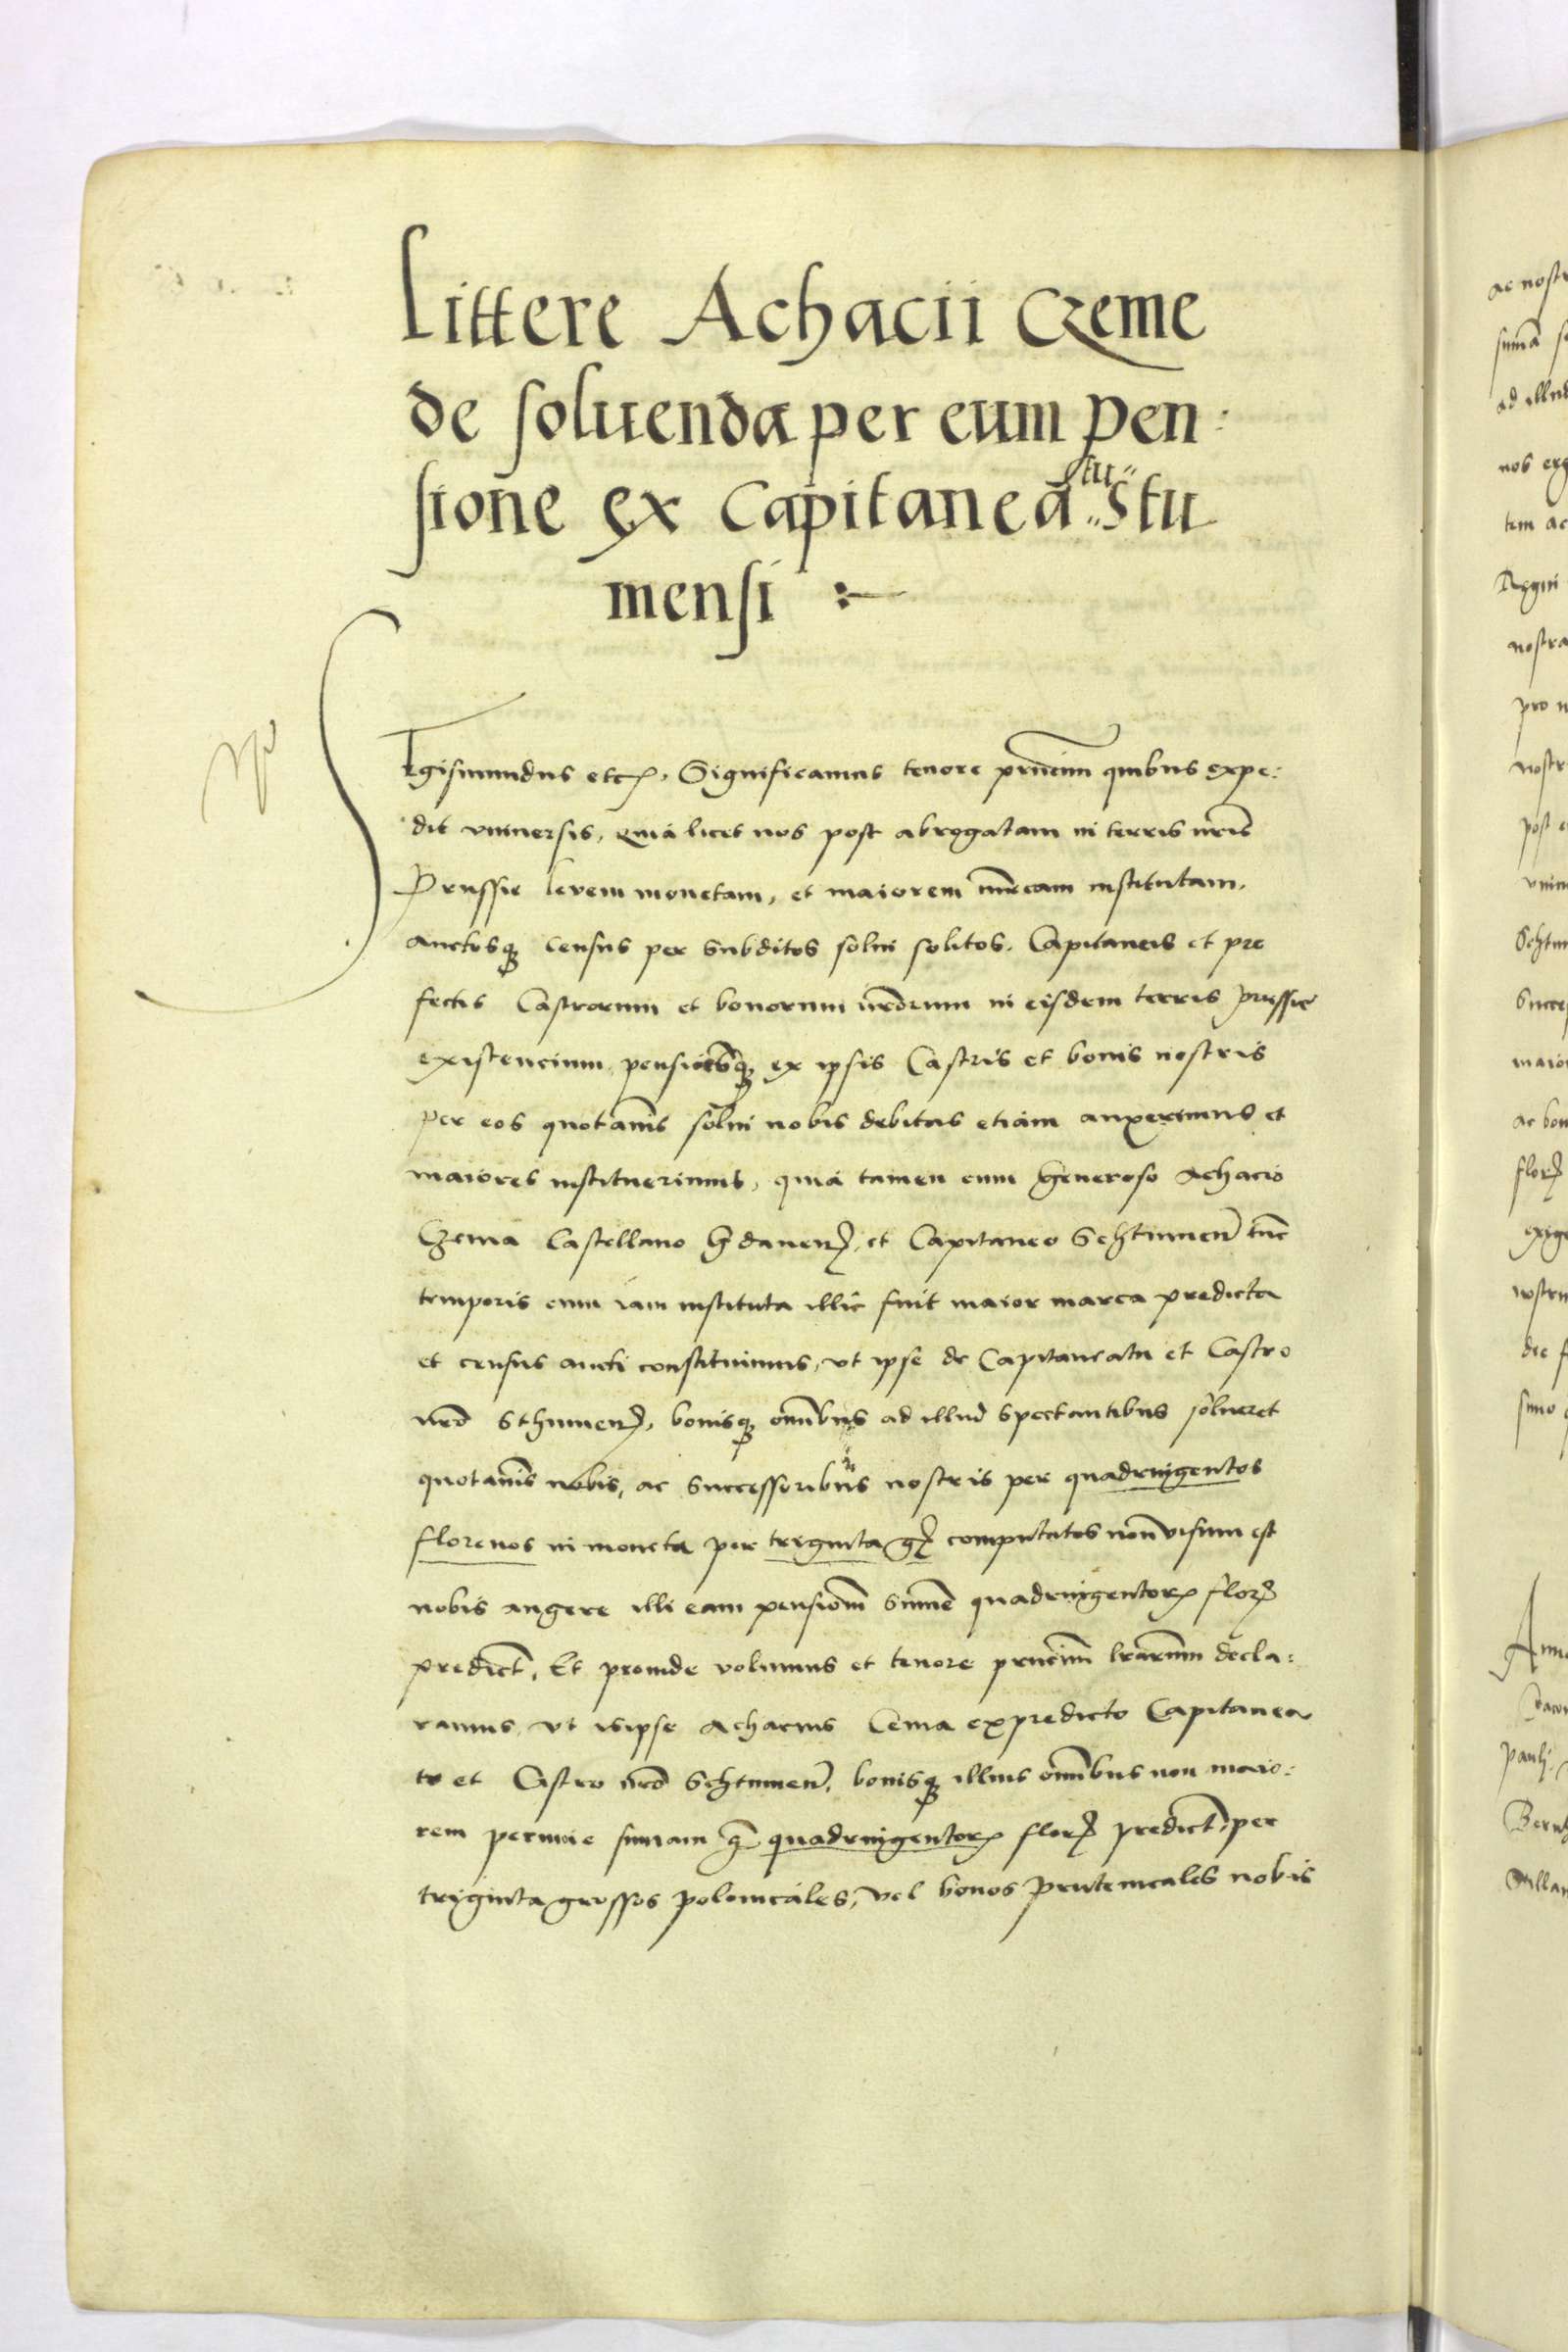 Littere Achacii Czeme
de soluenda per eum pen:
sione ex Capitanea„tu„ Stu
mensi
Sigismundus etc. Significamus tenore pntium quibus expe:
dit vniuersis, quia licet nos post abrogatam in terris nris
Prussie levem monetam, et maiorem mrcam institutam,
auctosq census per subditos solui solitos, Capitaneis et pre
fectis Castrorum et bonorum nrorum in eisdem terris prussie
existencium, pensionesq ex ipsis Castris et bonis nostris
per eos quotannis solui nobis debitas etiam auxerimus et
maiores instituerimus, quia tamen cum Generoso Achacio
Czema Castellano Gdanen, et Capitaneo Schtumen tunc
temporis cum iam instituta illic fuit maior marca predicta
et census aucti constituimus, vt ipse de Capitaneatu et Castro
nro Sthumen, bonisq omnibus ad illud spectantibus solueret
quotannis nobis, ac successoribus nostris per quadringentos
florenos in moneta per triginta gr computatos non visum est
nobis augere illi eam pensionem summe quadringentor flor
predict, Et proinde volumus et tenore pntium lrarum decla:
ramus, vt is ipse Achacius Cema ex predicto Capitanea
tu et Castro nro Schtumen, bonisq illius omnibus non maio:
rem pecunie sumam q quadringentor flor predict, per
triginta grossos polonicales, vel bonos prutenicales nobis
ac nostr
ad illud
nos
tem ac
Regni
nostra
pro n
nostr
post
Schtum
Succe
maior
ac bon
flor
exige
die
Anno
Pauli